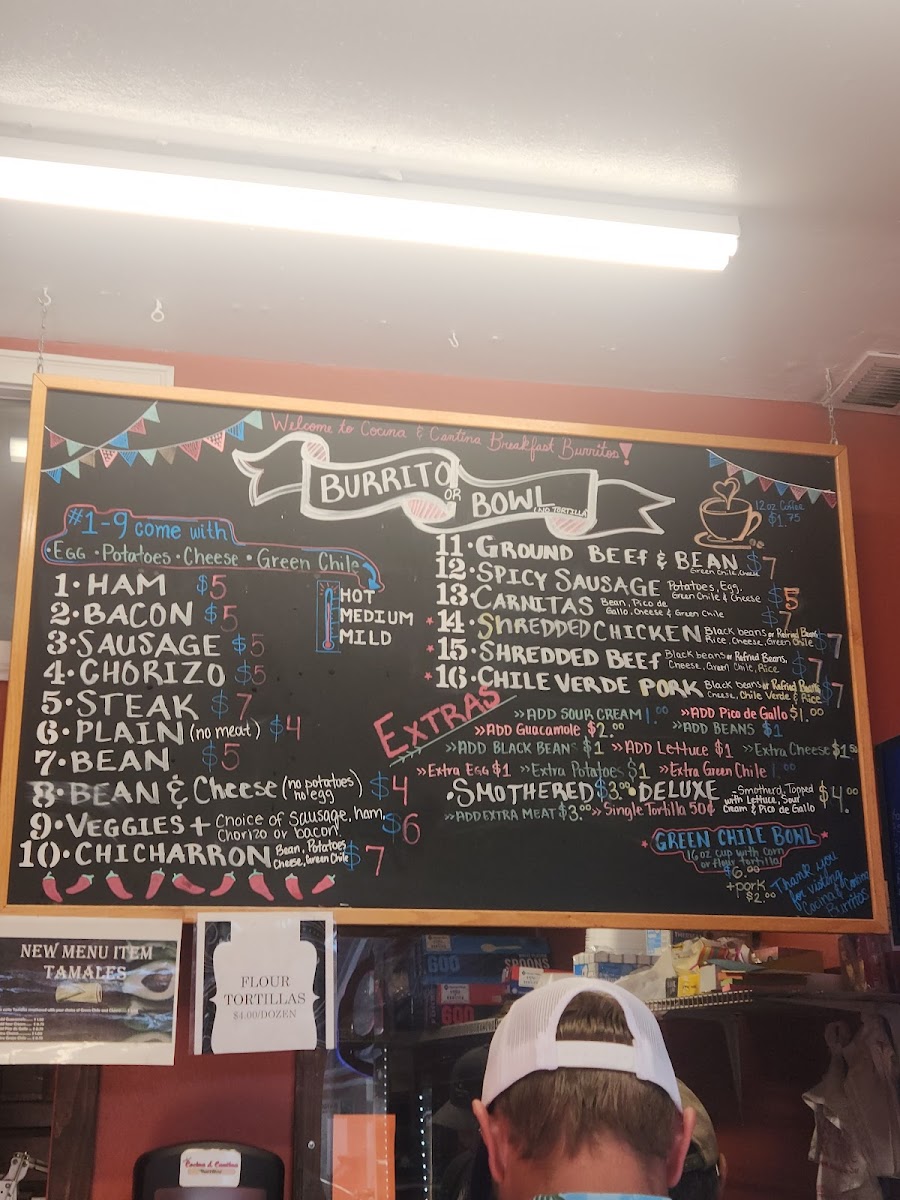 Welcome to Cocina & Cantina Breakfast Burritos!
BURRITO
OR
BOWL
(NO TORTILLA)
12 oz Coffee
$1.75
#1-9 come with
•Egg •Potatoes •Cheese •Green Chile
HOT
MEDIUM
MILD
1•HAM $5
2•BACON $5
3•SAUSAGE $5
4•CHORIZO $5
5•STEAK $7
6•PLAIN (no meat) $4
7•BEAN $5
8•BEAN & Cheese (no potatoes) $4
no egg
9•VEGGIES + Choice of sausage, ham, $6
chorizo or bacon
10•CHICHARRON Bean, Potatoes $7
Cheese, Green Chile
11•GROUND BEEF & BEAN $7
Green Chile, Cheese
12•SPICY SAUSAGE Potatoes, Egg, $5
Green Chile & Cheese
13•CARNITAS Bean, Pico de $7
Gallo, Cheese & Green Chile
14•SHREDDED CHICKEN Black beans or Refried Beans $7
Rice, Cheese, Green Chile
15•SHREDDED BEEF Black beans or Refried Beans, $7
Cheese, Green Chile, Rice
16•CHILE VERDE PORK Black beans or Refried Beans $7
Cheese, Chile Verde & Rice
EXTRAS
>>ADD SOUR CREAM 1.00 >>ADD Pico de Gallo $1.00
>>ADD Guacamole $2.00 >>ADD BEANS $1
>>ADD BLACK BEANS $1 >>ADD Lettuce $1 >>Extra Cheese $1.50
>>Extra EGG $1 >>Extra Potatoes $1 >>Extra Green Chile 1.00
•SMOTHERED $3.00 •DELUXE -Smotherd, Topped $4.00
with Lettuce, Sour
Cream & Pico de Gallo
>>ADD EXTRA MEAT $3.00 >>Single Tortilla 50¢
GREEN CHILE BOWL
16 oz cup with corn
or flour tortilla
$6.00
+pork
$2.00
Thank you
for visiting
Cocina & Cantina
Burritos
NEW MENU ITEM
TAMALES
FLOUR
TORTILLAS
$4.00/DOZEN
600 SPOONS
600
Cocina & Cantina